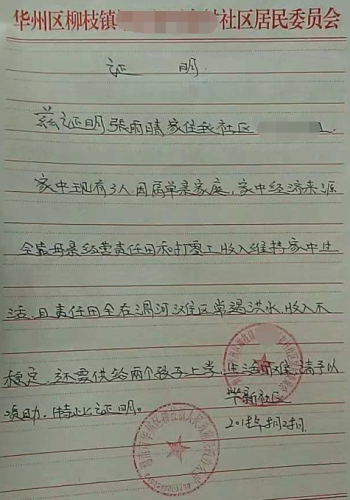 华州区柳枝镇 社区居民委员会
证 明
兹证明张雨晴家住我社区
家中现有3人因属单亲家庭,家中经济来源
全靠母亲经营责任田和打零工收入维持家中生
活,且责任田全在渭河滩区常遇洪水,收入不
稳定,还需供给两个孩子上学,生活困难,请予以
资助。特此证明。
华新社区